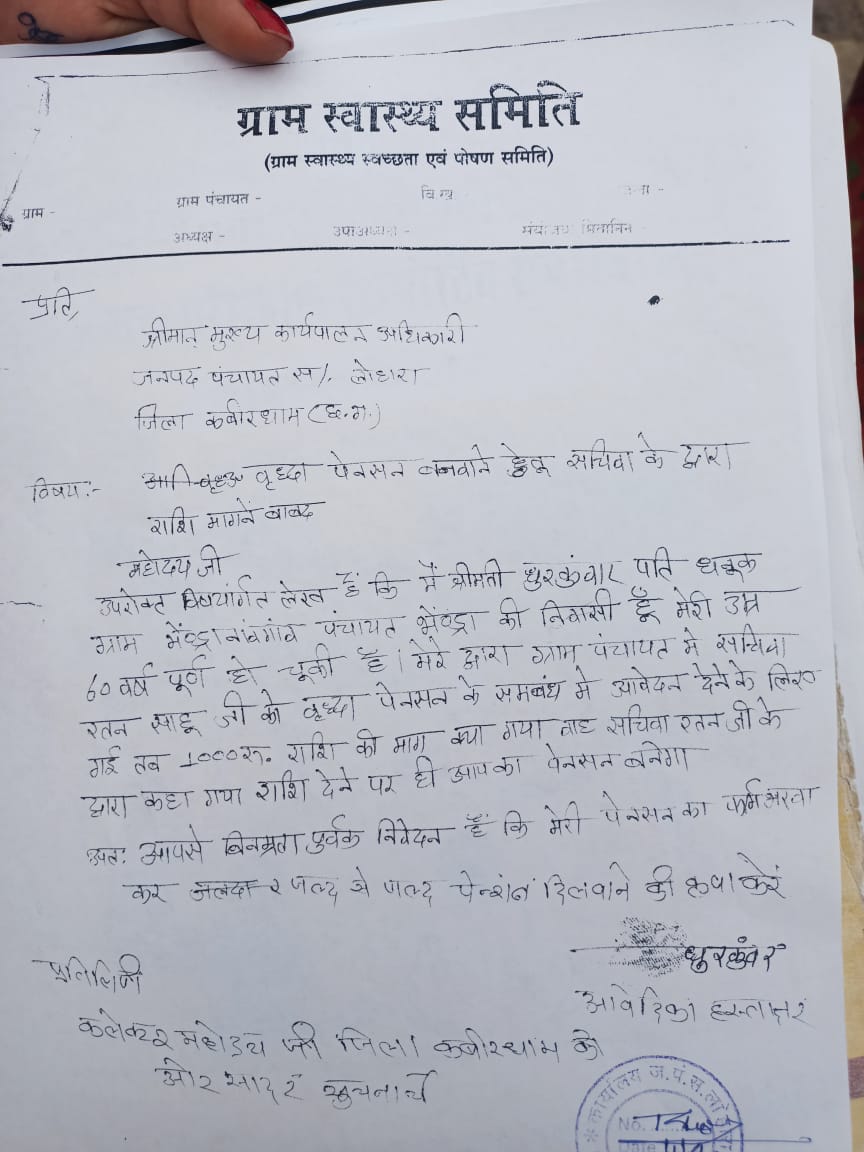 ग्राम स्वास्थ्य समिति
(ग्राम स्वास्थ्य स्वच्छता एवं पोषण समिति)
ग्राम - ग्राम पंचायत -
अध्यक्ष -
प्रति,
श्रीमान् मुख्य कार्यपालन अधिकारी
जनपद पंचायत स/. लोहारा
जिला कबीरधाम (छ.ग.)
विषय:- वृध्दा पेनसन बनवाने हेतू सचिवा के द्वारा
राशि मागनें बाबद
महोदय जी
उपरोक्त विषयांर्गत लेख हैं कि मैं श्रीमती धुरकुंवार पति
ग्राम पंचायत की निवासी हूँ मेरी उम्र
60 वर्ष पूर्ण हो चूकी हैं। मेरे द्वारा ग्राम पंचायत मे सचिवा
रतन साहू जी को वृध्दा पेनसन के समबंध मे आवेदन देने के लिए
गई तब 1000रु. राशि की माग क्या गया वाह सचिवा रतन जी के
द्वारा कहा गया राशि देने पर ही आपका पेनसन बनेगा
अत: आपसे विनम्रता पुर्वक निवेदन हैं कि मेरी पेनसन का फर्म
कर जल्द से जल्द पेन्शन दिलवाने की कृपा करें
धुरकुंवर
आवेदिका हस्ताक्षर
प्रतिलिपी
कलेक्टर महोदय जी जिला कबीरधाम को
ओर सादर सुचनार्थ
कार्यालय ज.पं.स.
No.
Date